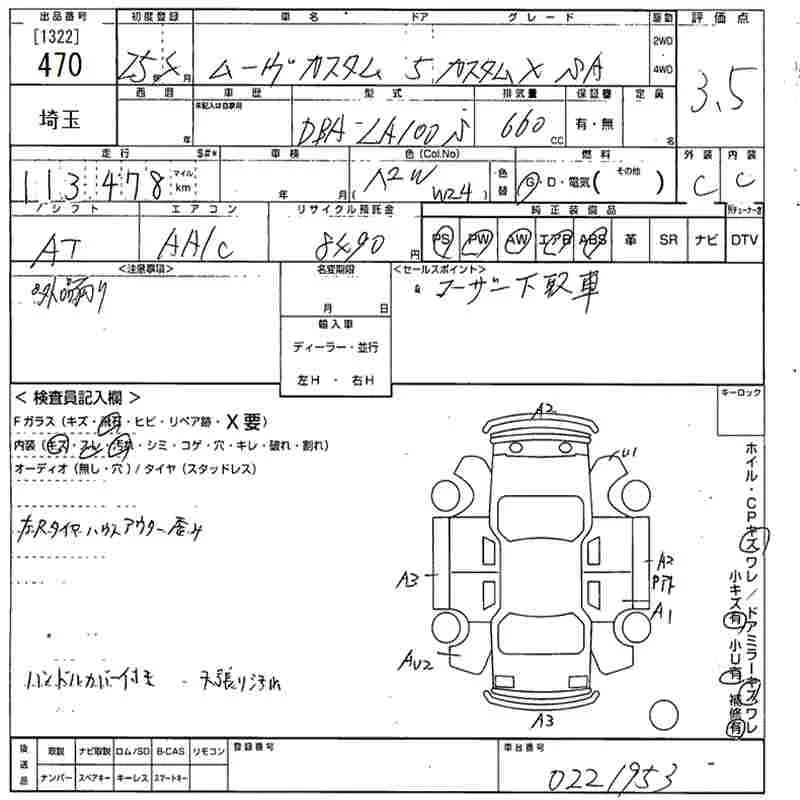 出品番号 初度登録 車名 ドア グレード 駆動 評価点
[1322]
470
25年 月 ムーヴカスタム 5 カスタムX SA 2WD 4WD 3.5
埼玉 西暦 車歴 型式 排気量 保証書 定員
未記入は自家用
年 DBA-LA100S 660 cc 有・無 名
走行 S#* 車検 色(Col.No) 燃料 外装 内装
113,478 マイル km 年 月 A2W (W24) 色替 G・D・電気( その他 ) C C
シフト エアコン リサイクル預託金 純正装備品
AT AA/C 8490 円 PS PW AW エアB ABS 革 SR ナビ DTV
<注意事項> 名変期限 <セールスポイント>
外品有り 月 日 ユーザー下取車
輸入車
ディーラー・並行
左H ・ 右H
< 検査員記入欄 > キーロック
Fガラス(キズ・飛石・ヒビ・リペア跡・X要)
内装(キズ・スレ・汚れ・シミ・コゲ・穴・キレ・破れ・割れ)
オーディオ(無し・穴)/タイヤ(スタッドレス)
左Rタイヤハウスアウター歪み
ハンドルカバー付き 天張り汚れ
A2
U1
A3
A2
A1
AU2
A3
ホイル・CPキズワレ/ドアミラーキズワレ
小キズ有 小U有 補修有
後送品 取説 ナビ取説 ロム/SD B-CAS リモコン 登録番号 車台番号
ナンバー スペアキー キーレス スマートキー 0221953